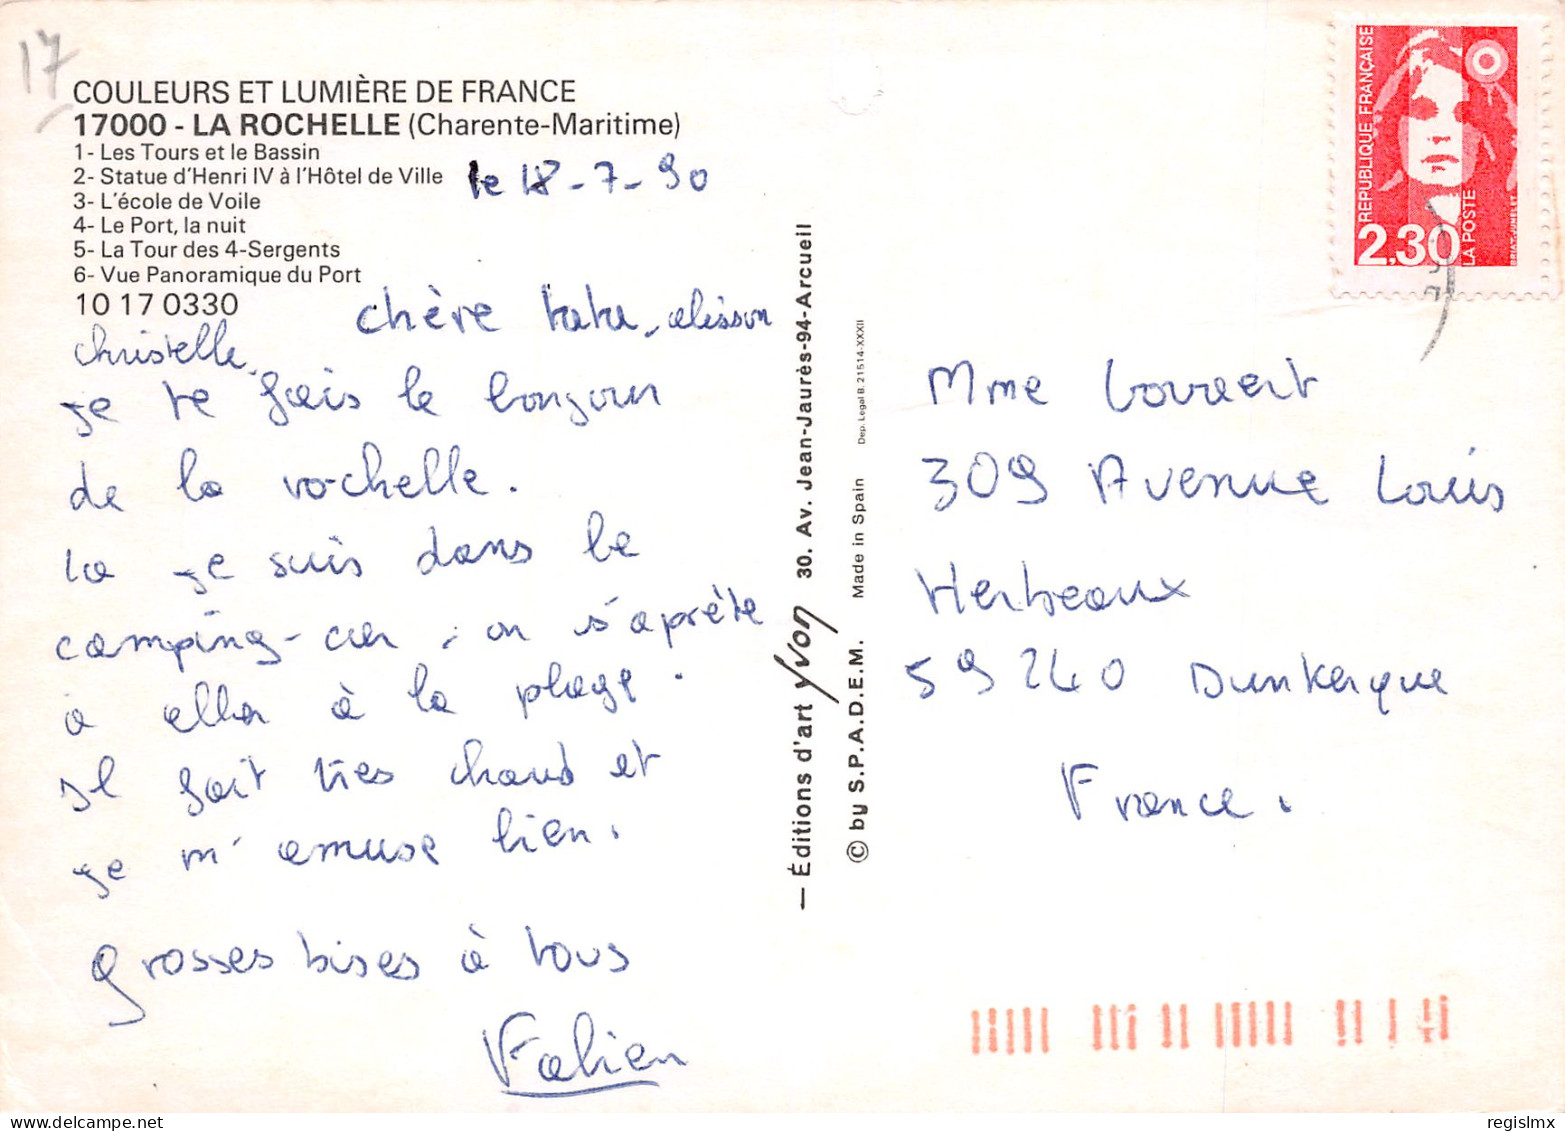 17
COULEURS ET LUMIÈRE DE FRANCE
17000 - LA ROCHELLE (Charente-Maritime)
1- Les Tours et le Bassin
2- Statue d'Henri IV à l'Hôtel de Ville
3- L'école de Voile
4- Le Port, la nuit
5- La Tour des 4-Sergents
6- Vue Panoramique du Port
10 17 0330
le 18-7-90
chère tata, alisson
christelle,
je te fais le bonjour
de la rochelle.
la je suis dans le
camping-car, on s'aprète
a aller à la plage.
Il fait très chaud et
je m'amuse bien.
grosses bises à tous
Fabien
— Éditions d'art yvon 30. Av. Jean-Jaurès-94-Arcueil
© by S.P.A.D.E.M. Made in Spain Dep. Legal B. 21514-XXXII
RÉPUBLIQUE FRANÇAISE
2,30
LA POSTE
BRIAT-JUMELET
Mme
309 Avenue Louis
Herbeaux
59240 Dunkerque
France.
regislmx